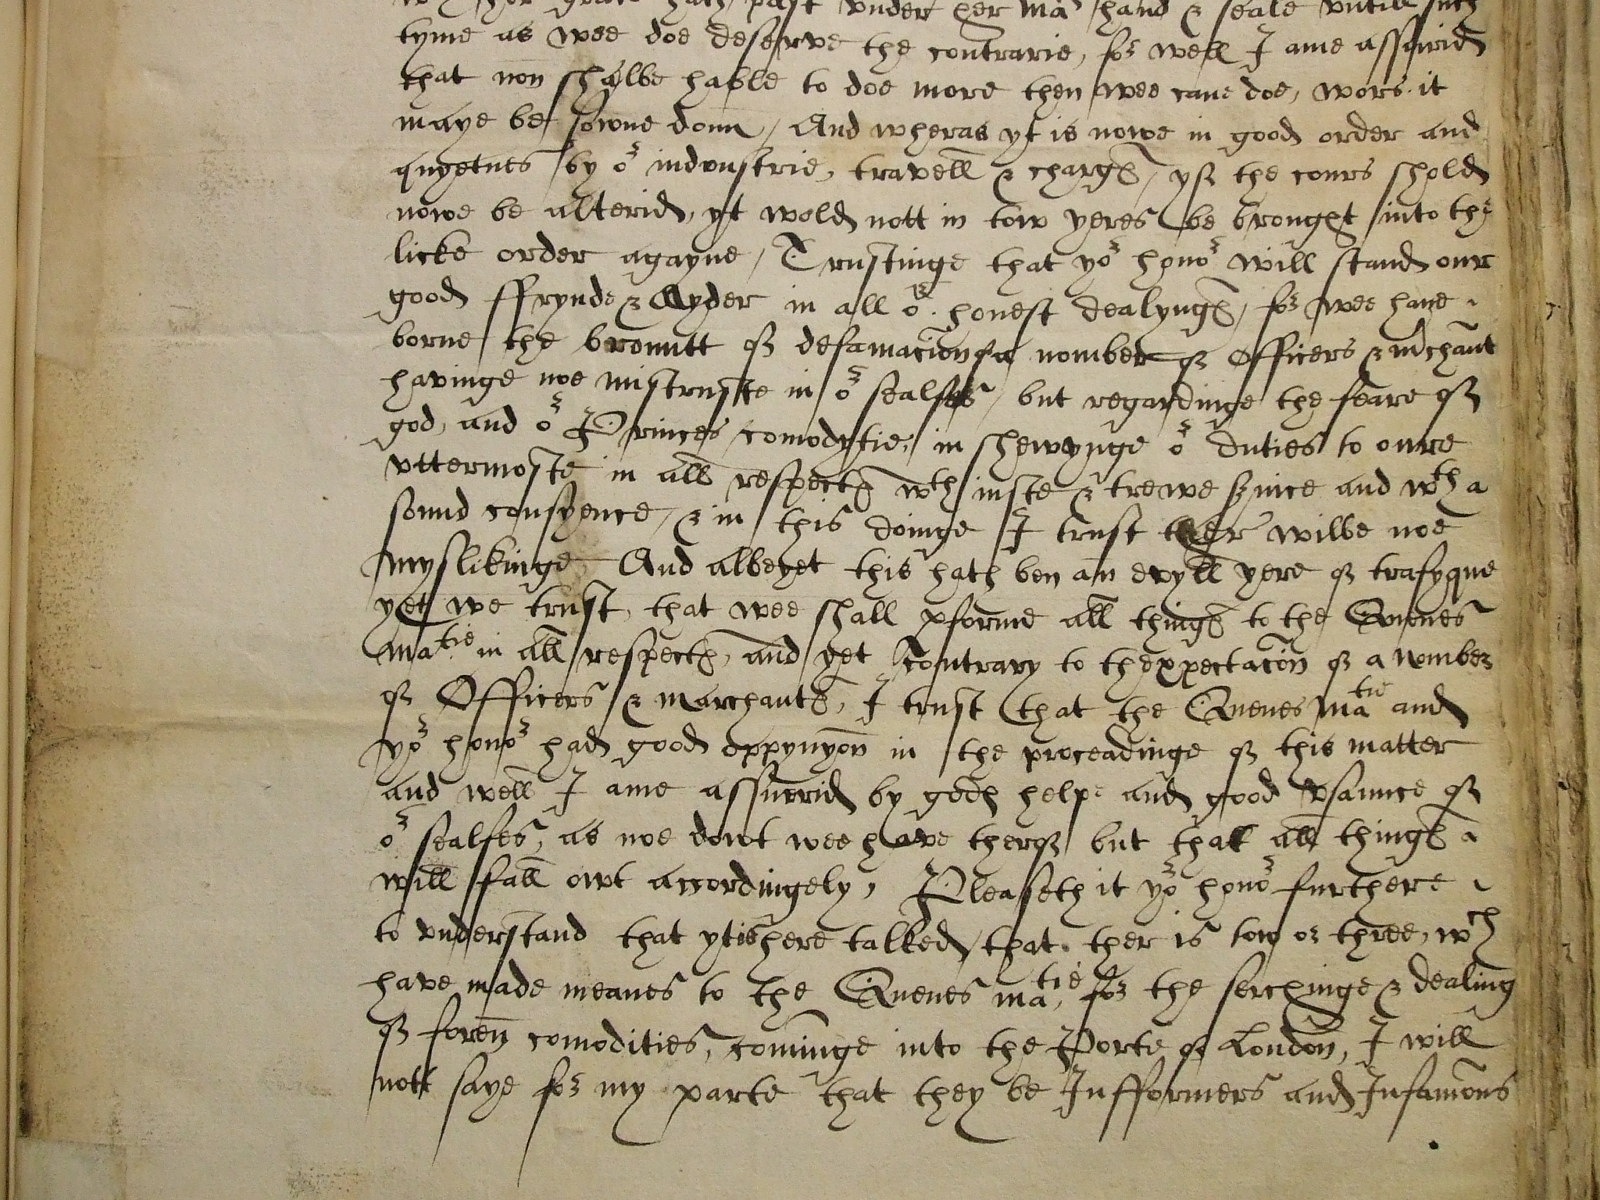 her grace hath past vnder her ma hand & seale vntill such
tyme as wee doe deserve the contrarie, for well I ame assurid
that non shalbe hable to doe more then wee cane doe, wors it
maye be sowne donn, And wheras yt is nowe in good order and
quyetnes by or indvustrie, travell & charges, yf the cours shold
nowe be alterid, yt wold nott in tow yeres be brought into the
licke order agayne, Trustinge that yor honor will stand our
good ffrynde & Ayder in all or honest dealynges, for wee have
borne the bronntt of defamacion of a nomber of Officers & mrchant
havinge noe mistruste in or sealfes, but regardinge the feare of
god, and or Princes comodytie, in shewynge or duties to oure
vttermoste in all respectes wth iuste & trewe service and wth a
sound consyence, & in this doinge I trust ther wilbe noe
myslikinge, And albeyet this hath ben an evyll yere of trafyque
yet we trust, that wee shall pforme all thinges to the Quenes
matie in all respectes, and yet contrary to thexpectacon of a nomber
of Officers & marchantes, I trust that the Quenes matie and
yor honor had good oppynyon in the proceadinge of this matter
and well I ame assurrid by godes helpe and good vsaunce of
or sealfes, as noe dowt wee have therof but that all thinges
will fall owt accordingely, Pleaseth it yor honor furthere
to vnderstand that yt is here talked, that ther is tow or three, wch
have made meanes to the Quenes matie, for the serchinge & dealing
of foren comodities, cominge into the Porte of London, I will
nott saye for my parte that they be Infformers and Infamous